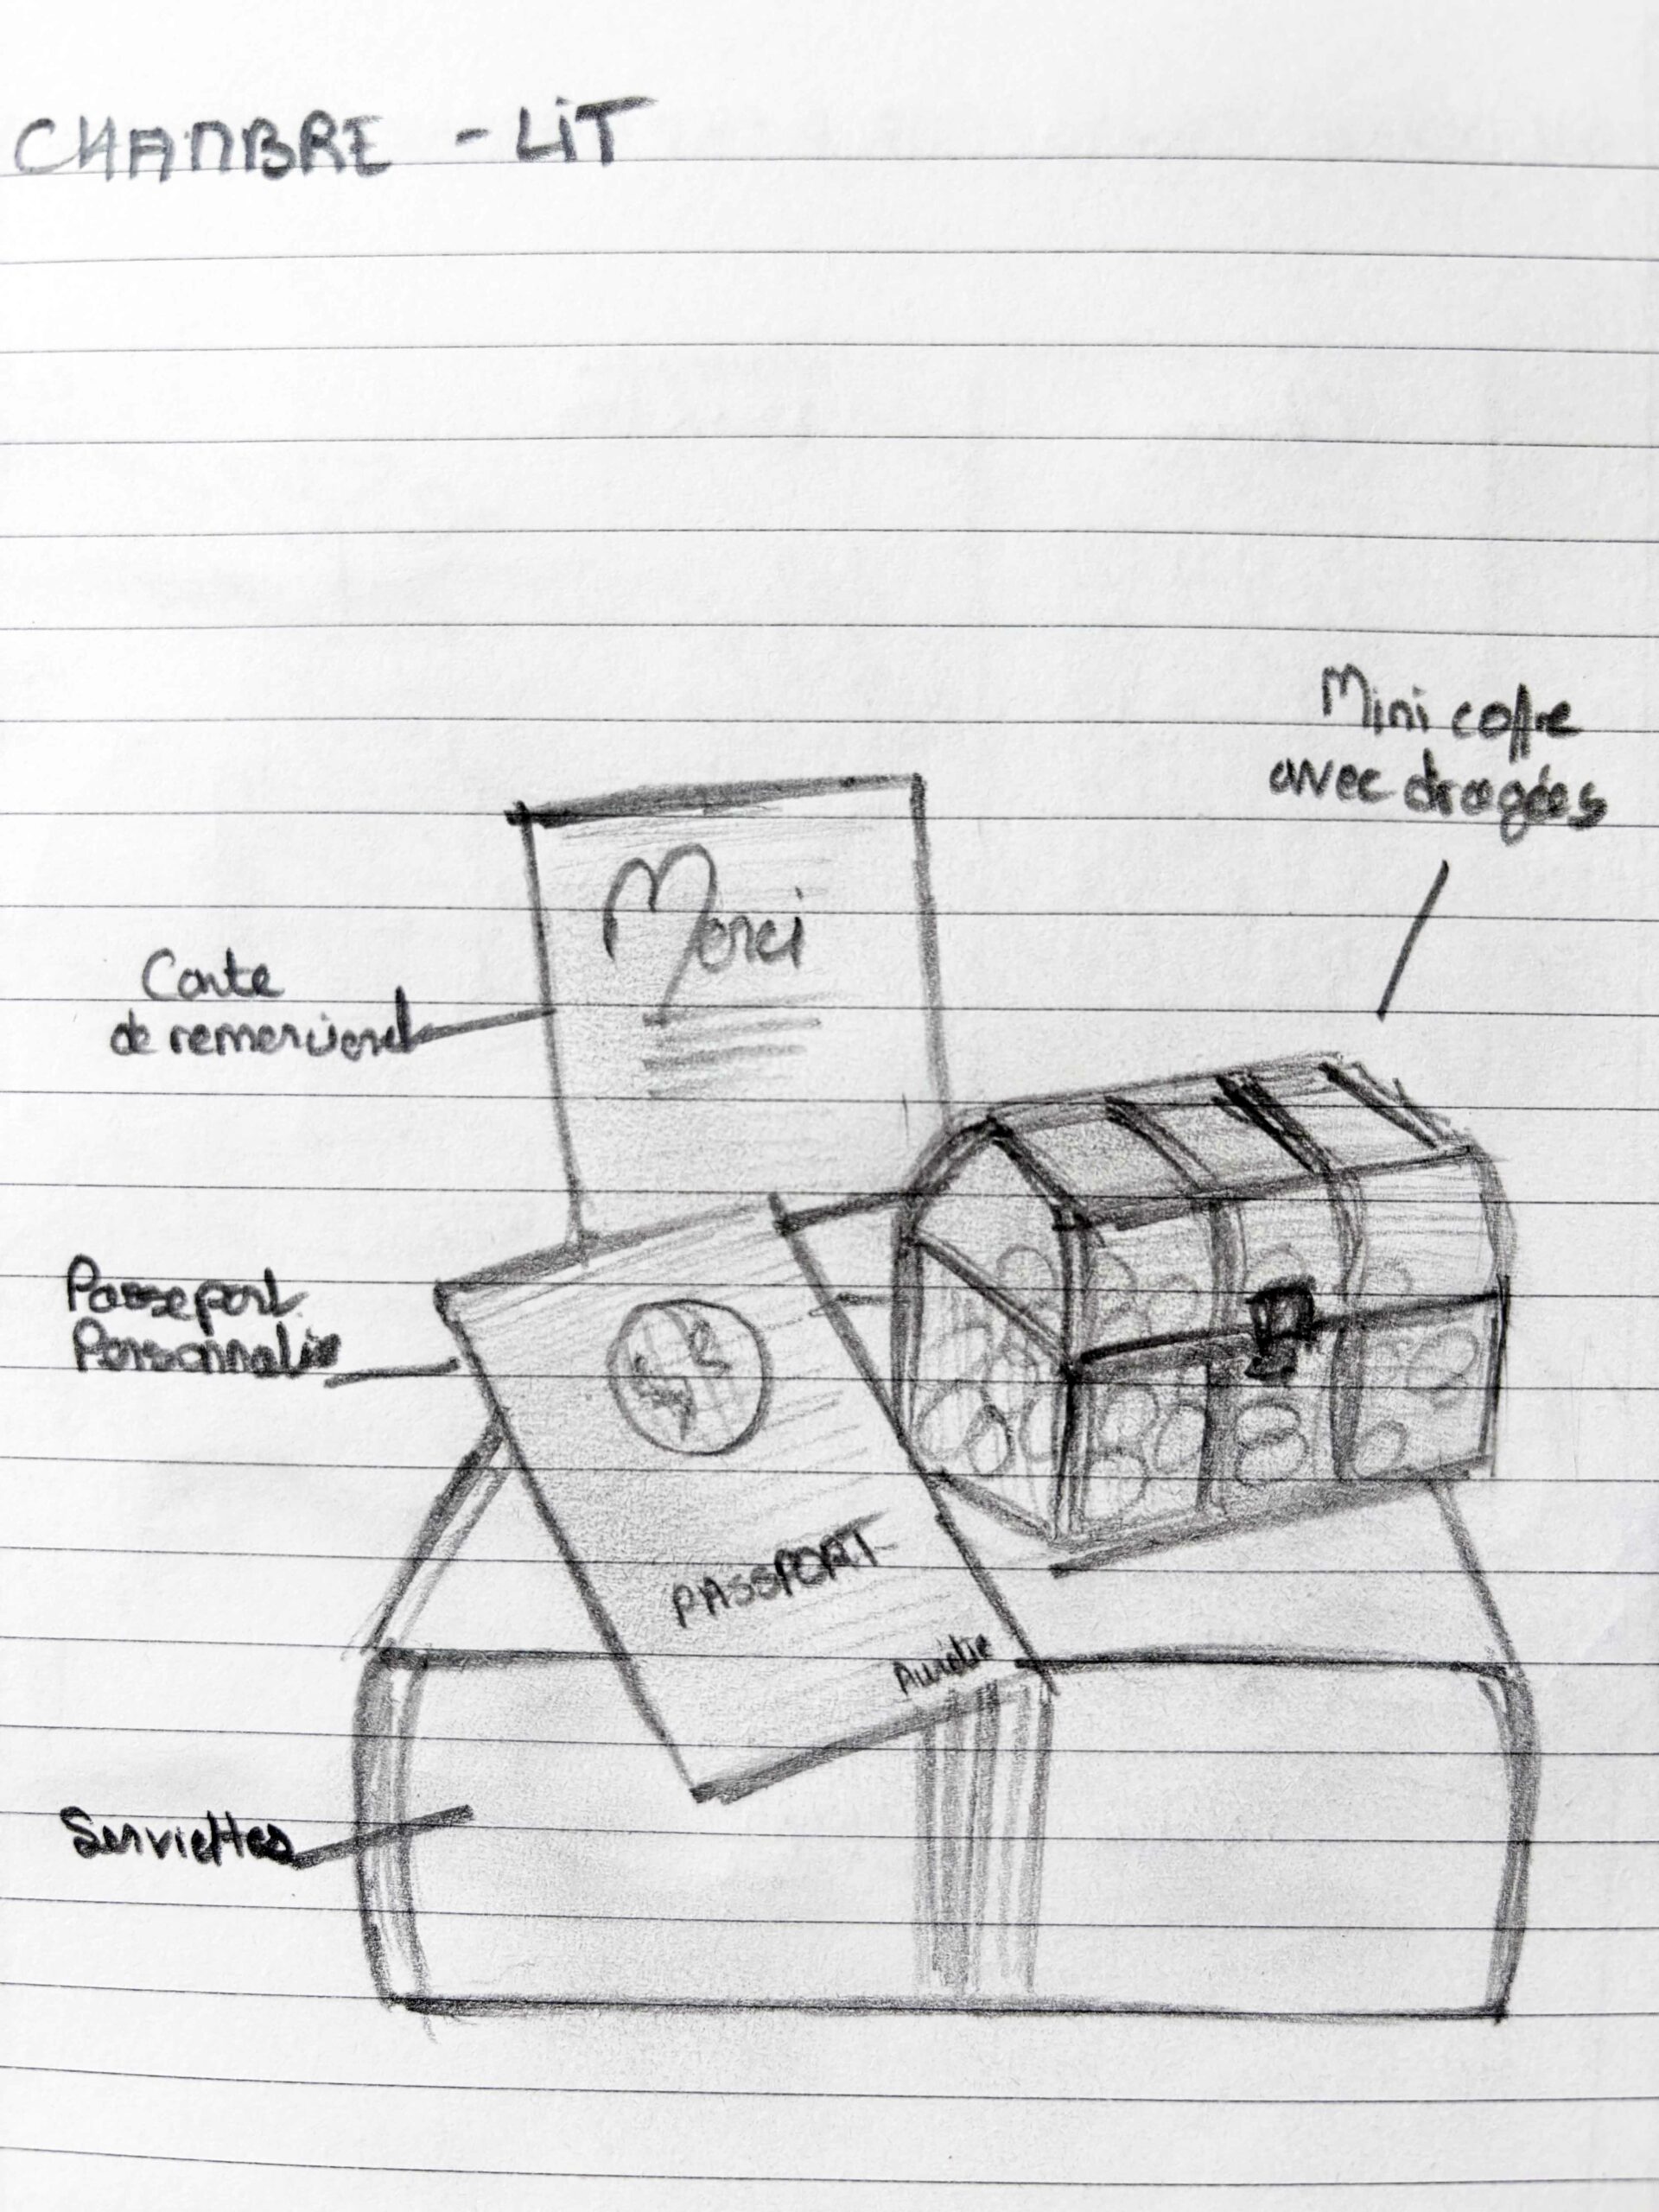 CHAMBRE - LiT
Mini coffre
avec dragées
Merci
Carte
de remerciement
Passeport
Personnalisé
PASSPORT
Aurélie
Serviettes